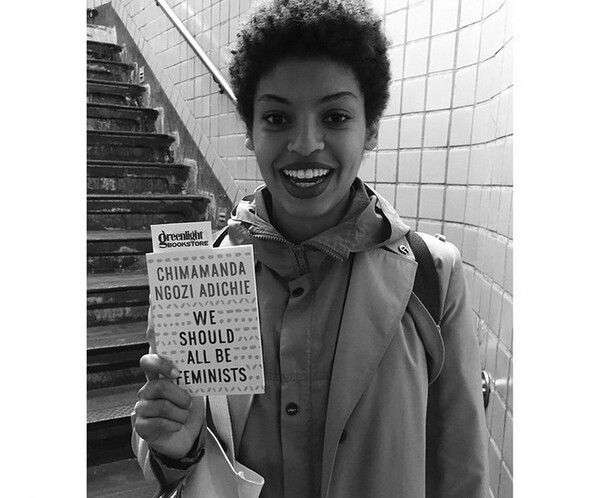 greenlight
BOOKSTORE
CHIMAMANDA
NGOZI ADICHIE
WE
SHOULD
ALL BE
FEMINISTS